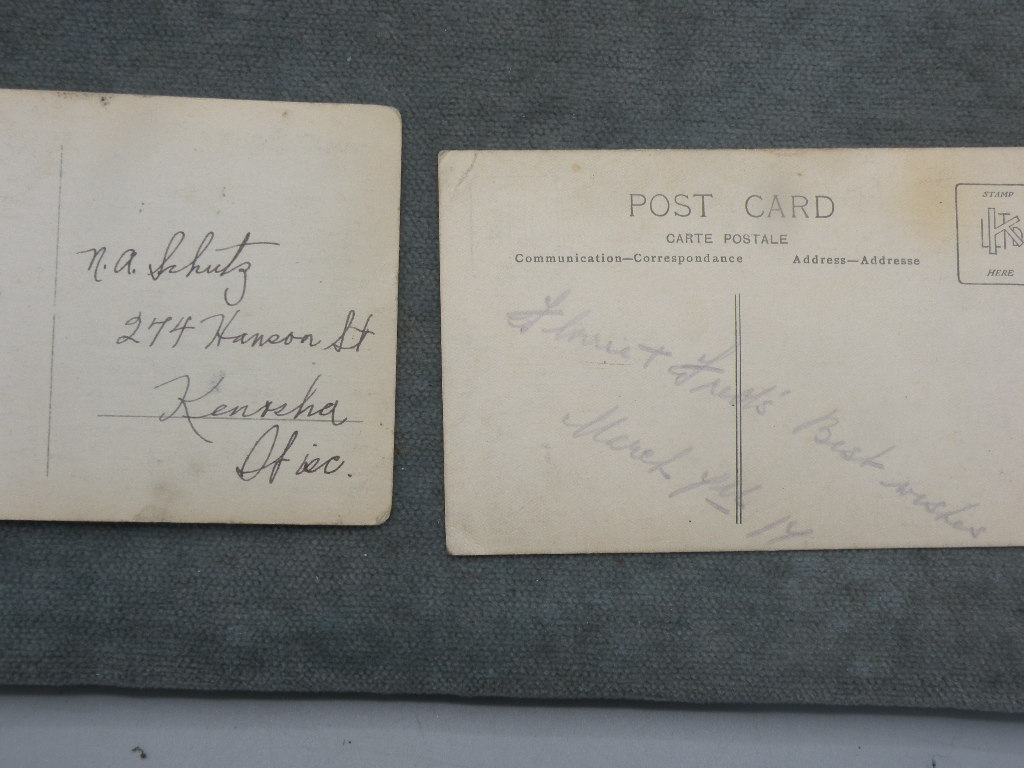 N. A. Schutz
274 Hanson St
Kenosha
Wisc.
POST CARD
CARTE POSTALE
Communication—Correspondance Address—Addresse
STAMP
HERE
Fred's Best wishes
March 14